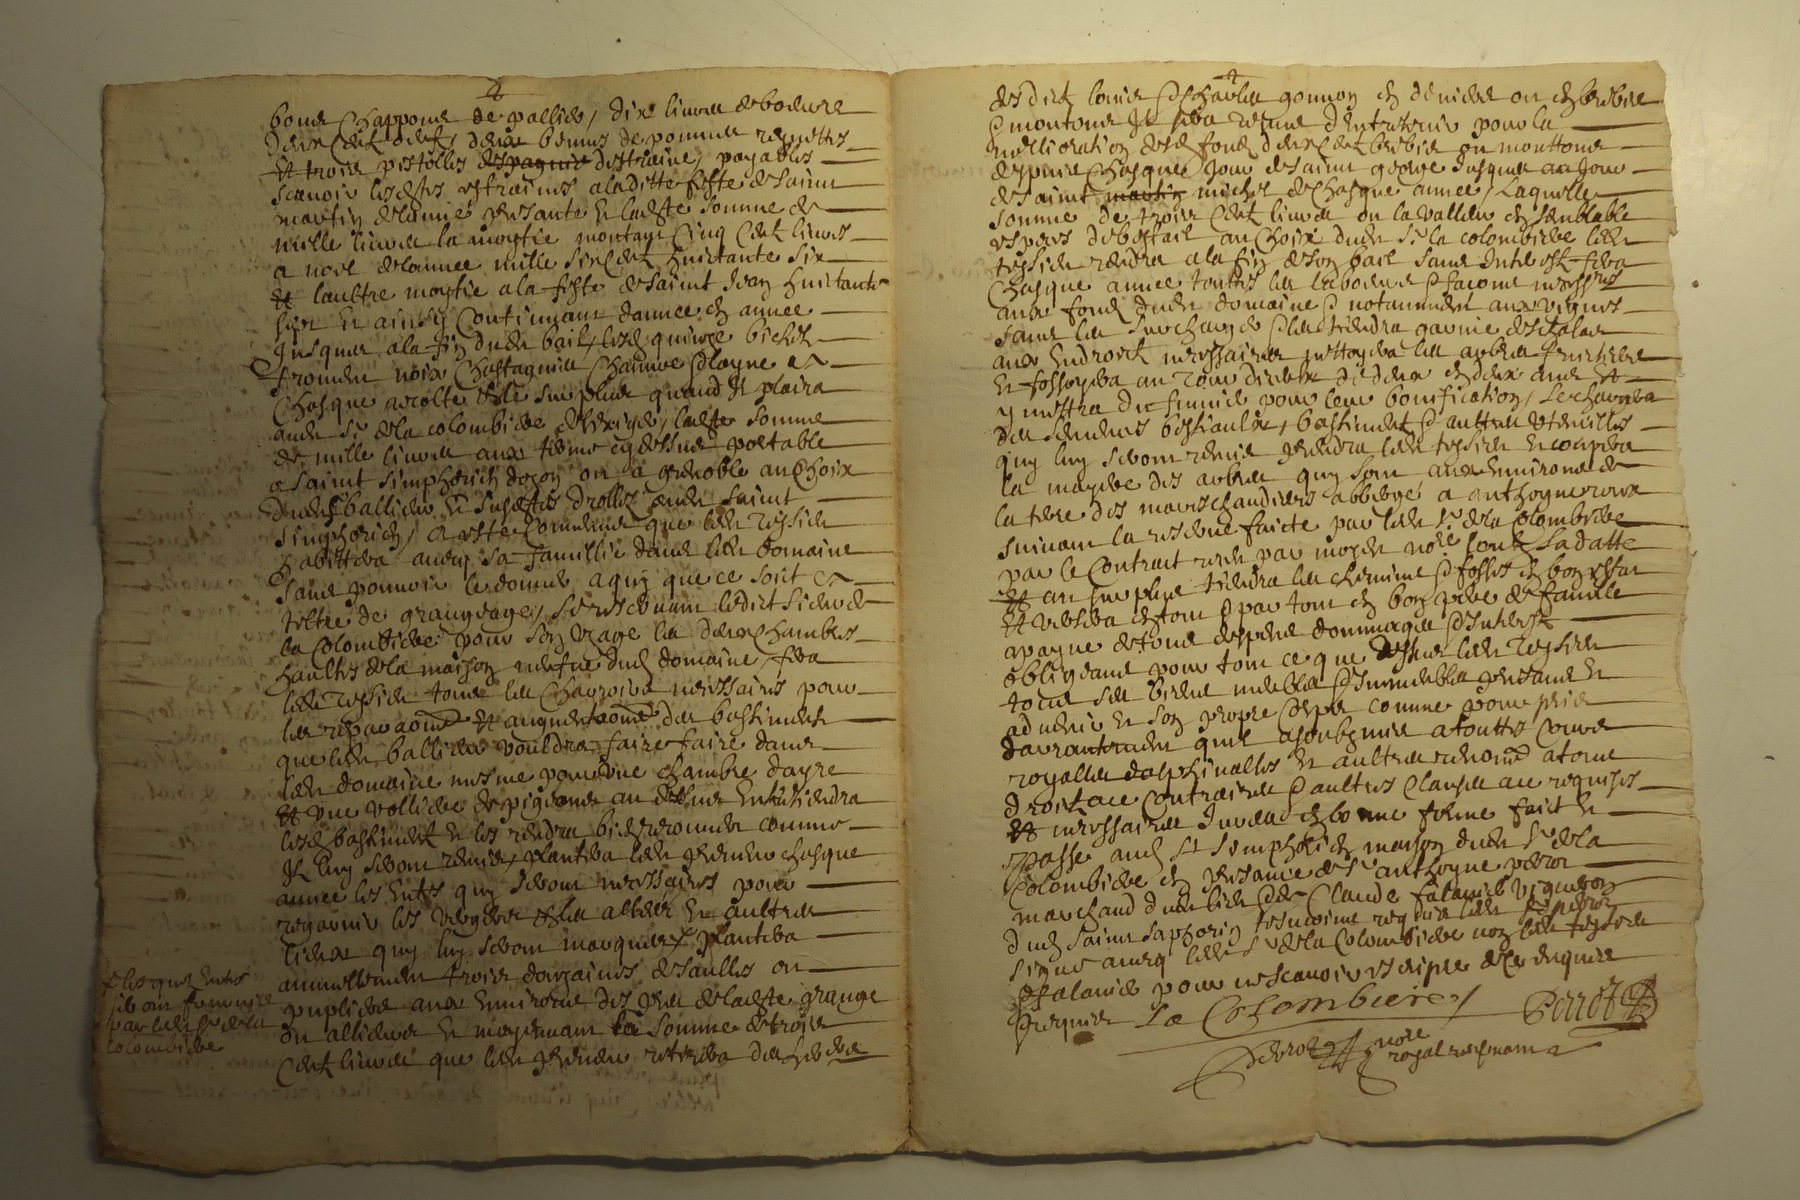 2
bons Chappons de pallier, dix livres de beurre
deux Cent œufs, deux bennes de pommes reynettes
Et trois pistolles destraine, payables
scavoir lesdes estraines a laditte feste de saint
martin de lannee presante et ladste somme de
mille livres la moytie montant Cinq Cent livres
a noel de lannee mille six Cent huictante six
Et laultre moytie a la feste de saint Jean huictante
sept et ainsy Continuant dannee en annee
Jusques a la fin dudit bail, lesd quinze bichets
froment noix Chastagnes Chanvre
Chasque recolte et le surplus quand Il plaira
audit Sr de la colombiere de lexiger, ladste somme
de mille livres aux termes cy dessus portable
a saint simphorien dozon ou a grenoble au Choix
dudit Sr ballieur et susdstes drolles audit saint
simphorien, a este Convenu que ledit Tessier
habittera avecq sa famillie dans ledit domaine
sans pouvoir le donner a quy que ce soit
tiltre de grangeage, se reservant ledict sieur de
la Colombiere pour son usage les deux Chambres
haultes de la maison neufue dud domaine, fera
ledit Tessier tous les Charrois necessaires pour
les reparaons et augmentaons des bastiments
que ledit ballieur vouldra faire faire dans
ledit domaine mesme pour une chambre dayre
et une volliere de pigeons au dessus Entretiendra
lesd bastiments et les rendra bien comme
Il luy seront remis, plantera ledit preneur chasque
annee les Entes quy seront necessaires pour
regarnir les vergers et les allees et aultres
lieux quy luy seront marques plantera
annuellement trois douzaines de saulles ou
pupliers aux Environs des prés de ladste grange
ou allieurs et moyennant la somme de trois
Cent livres que ledit preneur retirera des
lesques Entes
seront fournies
par ledit Sr de la
colombiere
2
desdicts louis et Charles gonnon en deniers ou en brebis
et moutons Il sera tenu dentretenir pour la
melioration desd fonds deux Cent brebis ou mouttons
depuis Chasque Jour de saint george Jusques au Jour
de saint michel de Chasque annee, Laquelle
somme de trois Cent livres ou la valleur en semblable
espece de bestail au Choix dudit Sr la colombiere ledit
tessier rendra a la fin de son bail sans Interest fera
Chasque annee touttes les labeurs et facons necessres
aux fonds dudit domaine et notamment aux vignes
sans les surcharger et les tiendra garnies deschalas
aux Endroicts necessaires nettoyera les arbres fruictiers
et fossoyera au tour diceux de deux en deux ans et
y mettra du fumier pour leur bonification, se chargera
des semences bestiaulx, bastiments et aultres utencilles
quy luy seront remis prendra ledit tessier et coupera
la mayere des arbres quy sont aux Environs de
la terre des mareschaudieres abberge a anthoyne roux
suivant la reserve faicte par ledit Sr de la Colombiere
par le Contrat receu par moydit nore soubz sa datte
Et au surplus tiendra les chemins et fosses en bon estat
Et usera en tout et par tout en bon pere de famille
a payne de tous despens dommages et Interest
obligeant pour tout ce que dessus ledit Tessier
tous ses biens meubles et Immeubles presans et
advenir et son propre Corps comme pour prix
darrantement quil a soubzmis a touttes Cours
royalles dalphinalles et aultres renonce a tous
droicts a ce Contraires et aultres Clauses a ce requises
et necessaires Jurees en bonne forme faict et
passe aud St Simphorien maison dudit Sr de la
Colombiere en presance de Sr anthoyne perrot
marchand dudit lieu et de Claude falavier vigneron
dud saint saphorin tesmoins requis ledit Sr perrot
signe avecq ledit Sr de la Colombiere non ledit tessier
et falavier pour ne scavoir escripre de ce enquis
et requis La Colombiere / Perrot
Perrot nore
royal recepvant